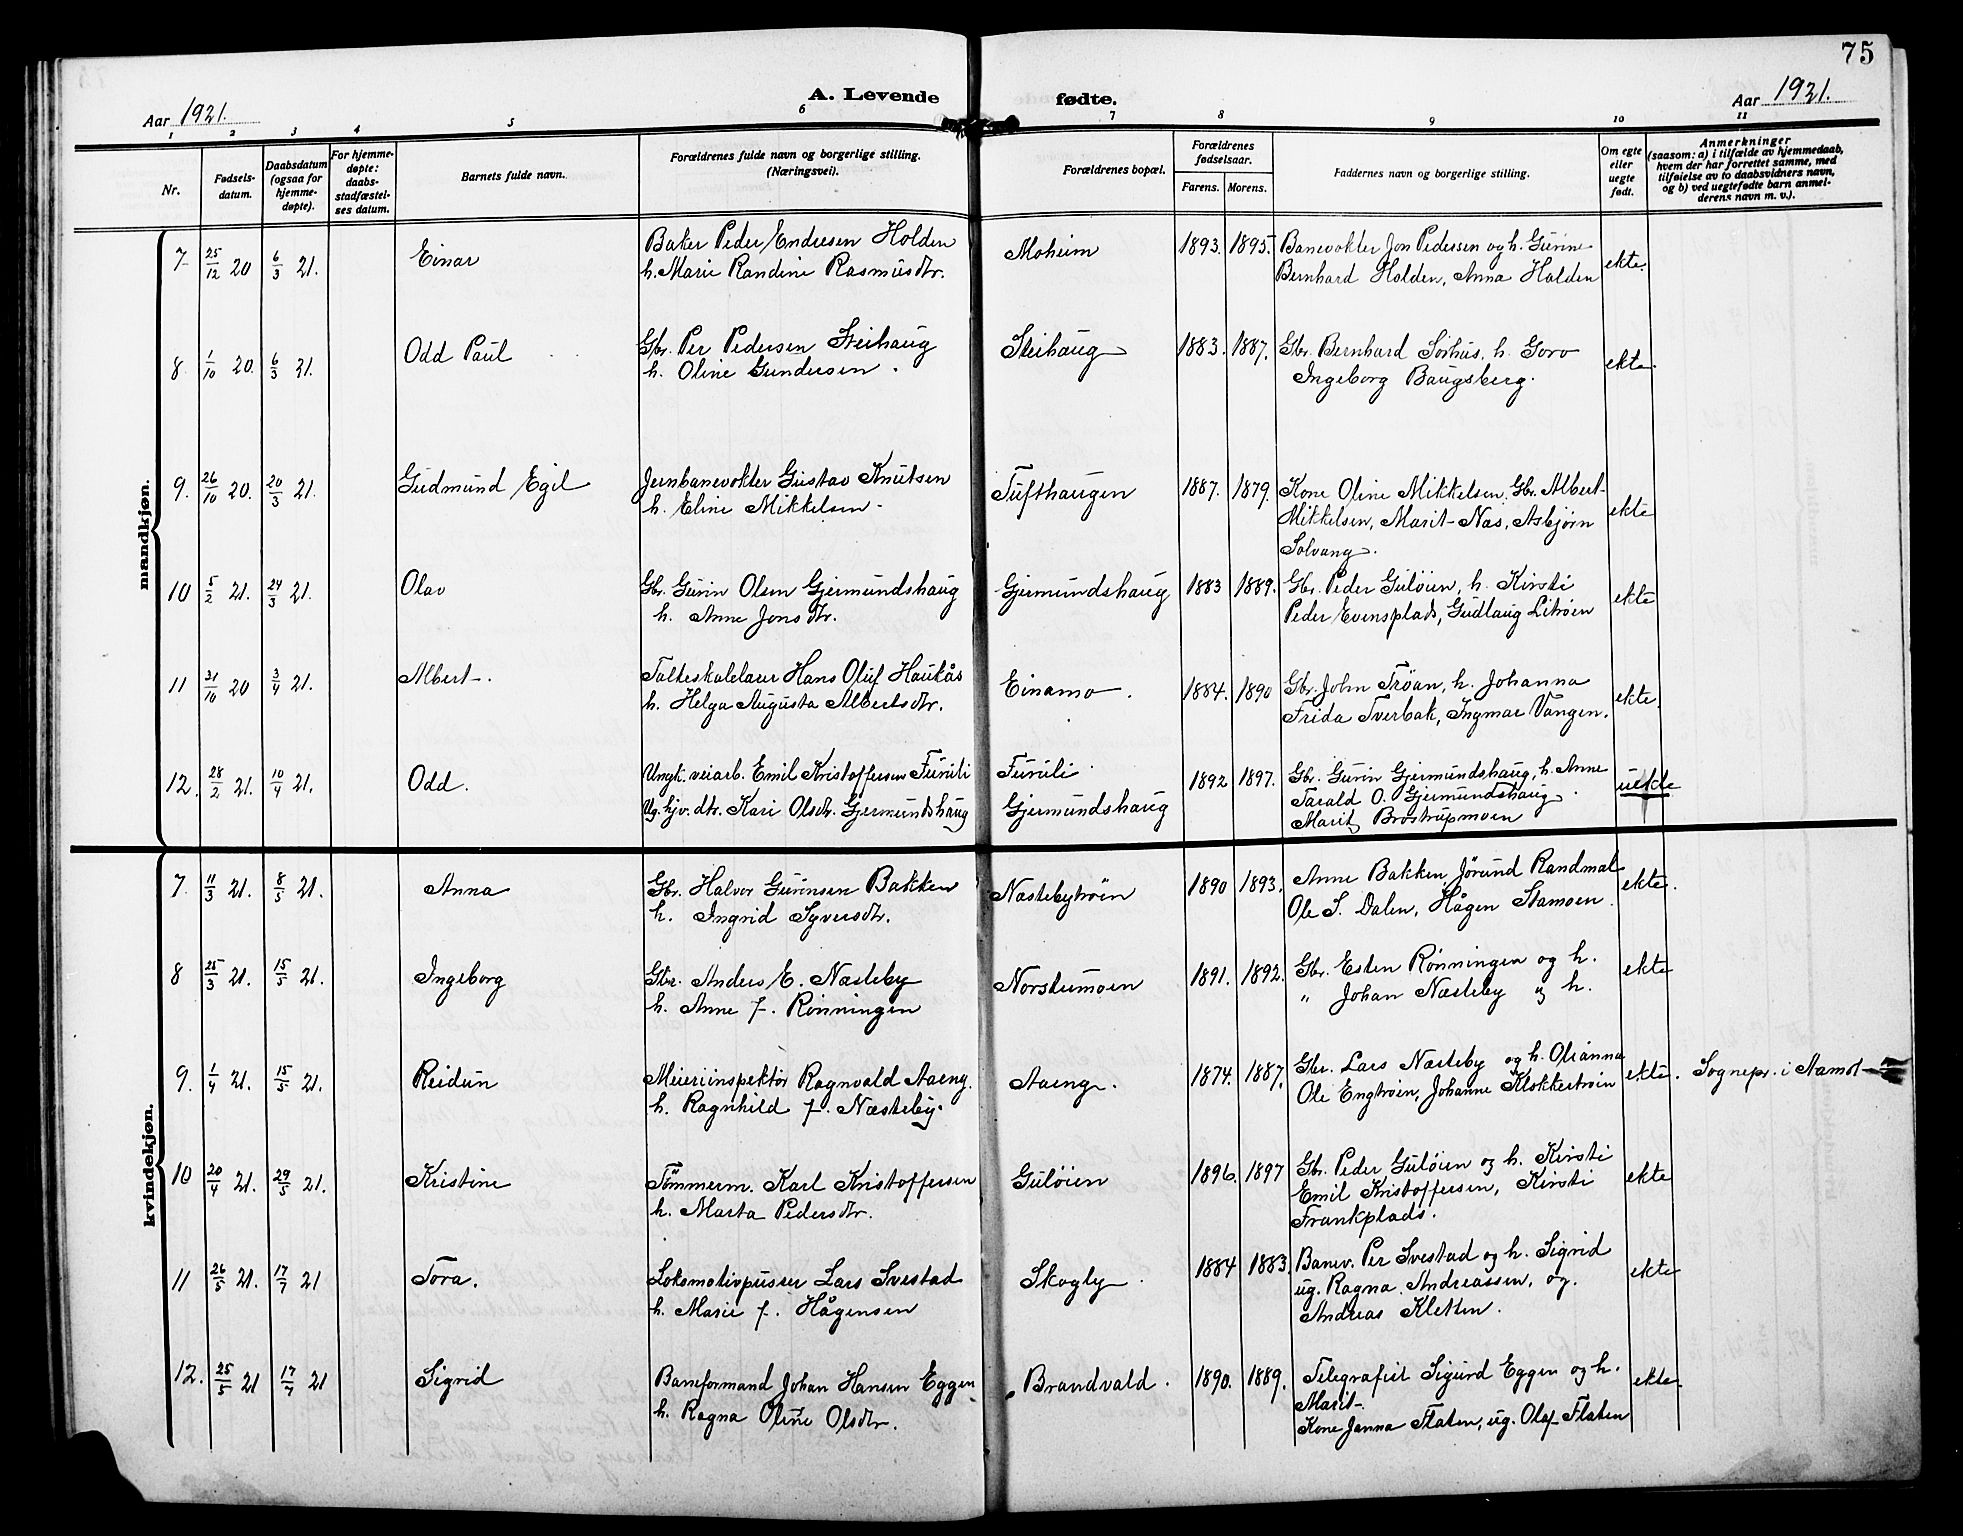 75
A. Levende fødte.
Aar 1921.
Aar 1921.
1 2 3 4 5 6 7 8 9 10 11
Nr.
Fødsels-
datum.
Daabsdatum
(ogsaa for
hjemme-
døpte).
For hjemme-
døpte:
daabs-
stadfæstel-
ses datum.
Barnets fulde navn.
Forældrenes fulde navn og borgerlige stilling.
(Næringsvei).
Forældrenes bopæl.
Forældrenes
fødselsaar.
Farens. Morens.
Faddernes navn og borgerlige stilling.
Om egte
eller
uegte
født.
Anmerkninger
(saasom: a) i tilfælde av hjemmedaab,
hvem der har forrettet samme, med
tilføielse av to daabsvidners navn,
og b) ved uegtefødte barn anmel-
derens navn m. v.).
mandkjøn.
7 25/12 20 6/3 21. Einar Baker Peder Endresen Holden Moheim 1893. 1895 Banevokter Jon Pedersen og h. Gurine ekte.
h. Marie Randine Rasmusdtr. Bernhard Holden, Anna Holden
8 1/10 20. 6/3 21. Odd Paul Gbr. Per Pedersen Steihaug Steihaug 1883. 1887. Gbr. Bernhard Sørhus, h. Goro ekte.
h. Oline Gundersen. Ingeborg Baugsberg.
9. 26/10 20. 20/3 21. Gudmund Egil Jernbanevokter Gustav Knutsen Tufthaugen 1887. 1879. Kone Oline Mikkelsen, Gbr. Albert ekte
h. Eline Mikkelsen Mikkelsen, Marit Næs, Asbjørn
Solvang.
10 5/2 21. 24/3 21. Olav Gbr. Gurin Olsen Gjermundshaug Gjermundshaug 1883 1889. Gbr. Peder Guløien, h. Kirsti ekte
h. Anne Jonsdtr. Peder Evensplads, Gudlaug Litrøen
11 31/10 20 3/4 21. Albert. Folkeskolelærer Hans Oluf Haukås Einamo. 1884. 1890 Gbr. John Trøan, h. Johanna ekte.
h. Helga Augusta Albertsdtr. Frida Tverbak, Ingmar Vangen.
12. 28/2 21. 10/4 21. Odd. Ungk. veiarb. Emil Kristoffersen Furuli Furuli 1892 1897. Gbr. Gurin Gjermundshaug, h. Anne uekte
Ug. hjv. dtr. Kari Olsdtr. Gjermundshaug Gjermundshaug Tarald O. Gjermundshaug.
Marit Brostrupmoen
kvindekjøn.
7. 11/3 21. 8/5 21. Anna Gbr. Halvor Gurinsen Bakken Næstebytrøen 1890 1893. Anne Bakken, Jørund Randmæl ekte.
h. Ingrid Syversdtr. Ole S. Dalen, Hågen Stamoen.
8 25/3 21. 15/5 21. Ingeborg Gbr. Anders E. Næsteby Norstumoen 1891. 1892. Gbr. Esten Rønningen og h. ekte
h. Anne f. Rønningen " Johan Næsteby og h.
9. 1/4 21. 15/5 21. Reidun Meieriinspektør Ragnvald Aaeng. Aaeng. 1874. 1887. Gbr. Lars Næsteby og h. Olianna ekte. Sognepr. i Aamot
h. Ragnhild f. Næsteby. Ole Engtrøen, Johanne Klokkertrøen
10 20/4 21. 29/5 21. Kristine Tømmerm. Karl Kristoffersen Guløien 1896. 1897 Gbr. Peder Guløien og h. Kirsti ekte
h. Marta Pedersdtr. Emil Kristoffersen, Kirsti
Frankplads.
11 26/5 21. 17/7 21 Tora. Lokomotivpusser Lars Svestad Skogly 1884 1883. Banev. Per Svestad og h. Sigrid ekte
h. Marie f. Hågensen ug. Ragna Andreassen, og.
Andreas Kletten.
12. 25/5 21 17/7 21 Sigrid Baneformand Johan Hansen Eggen Brandvald. 1890. 1889. Telegrafist Sigurd Eggen og h. ekte.
h. Ragna Oline Olsdtr. Marit
Kone Janna Flaten, ug. Olaf Flaten